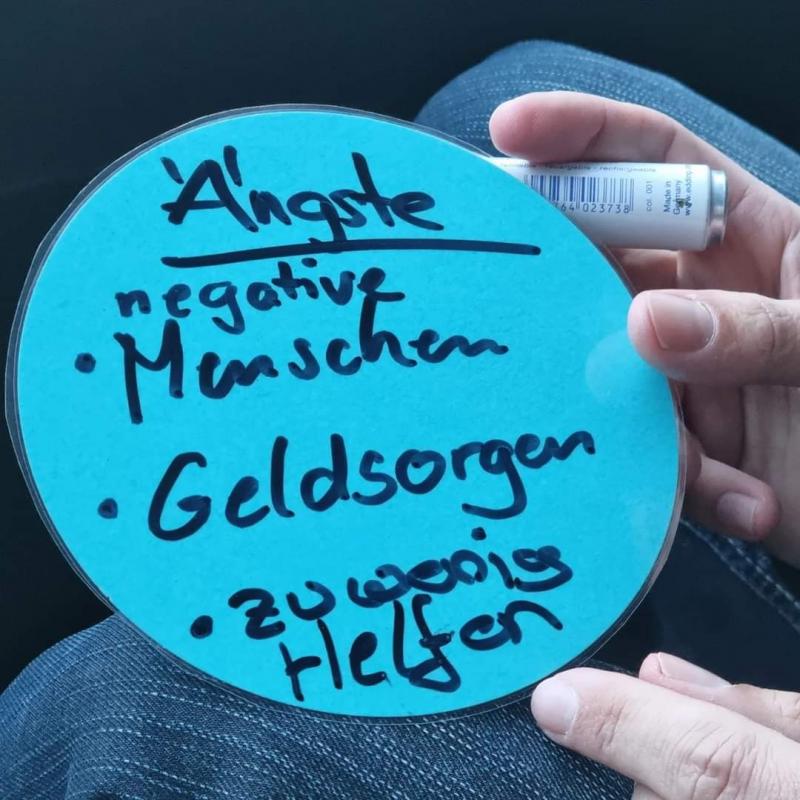 Ängste
negative
• Menschen
• Geldsorgen
• zu wenig
Helfen
rechargeable
64 023738
col. 001
Made in
Germany